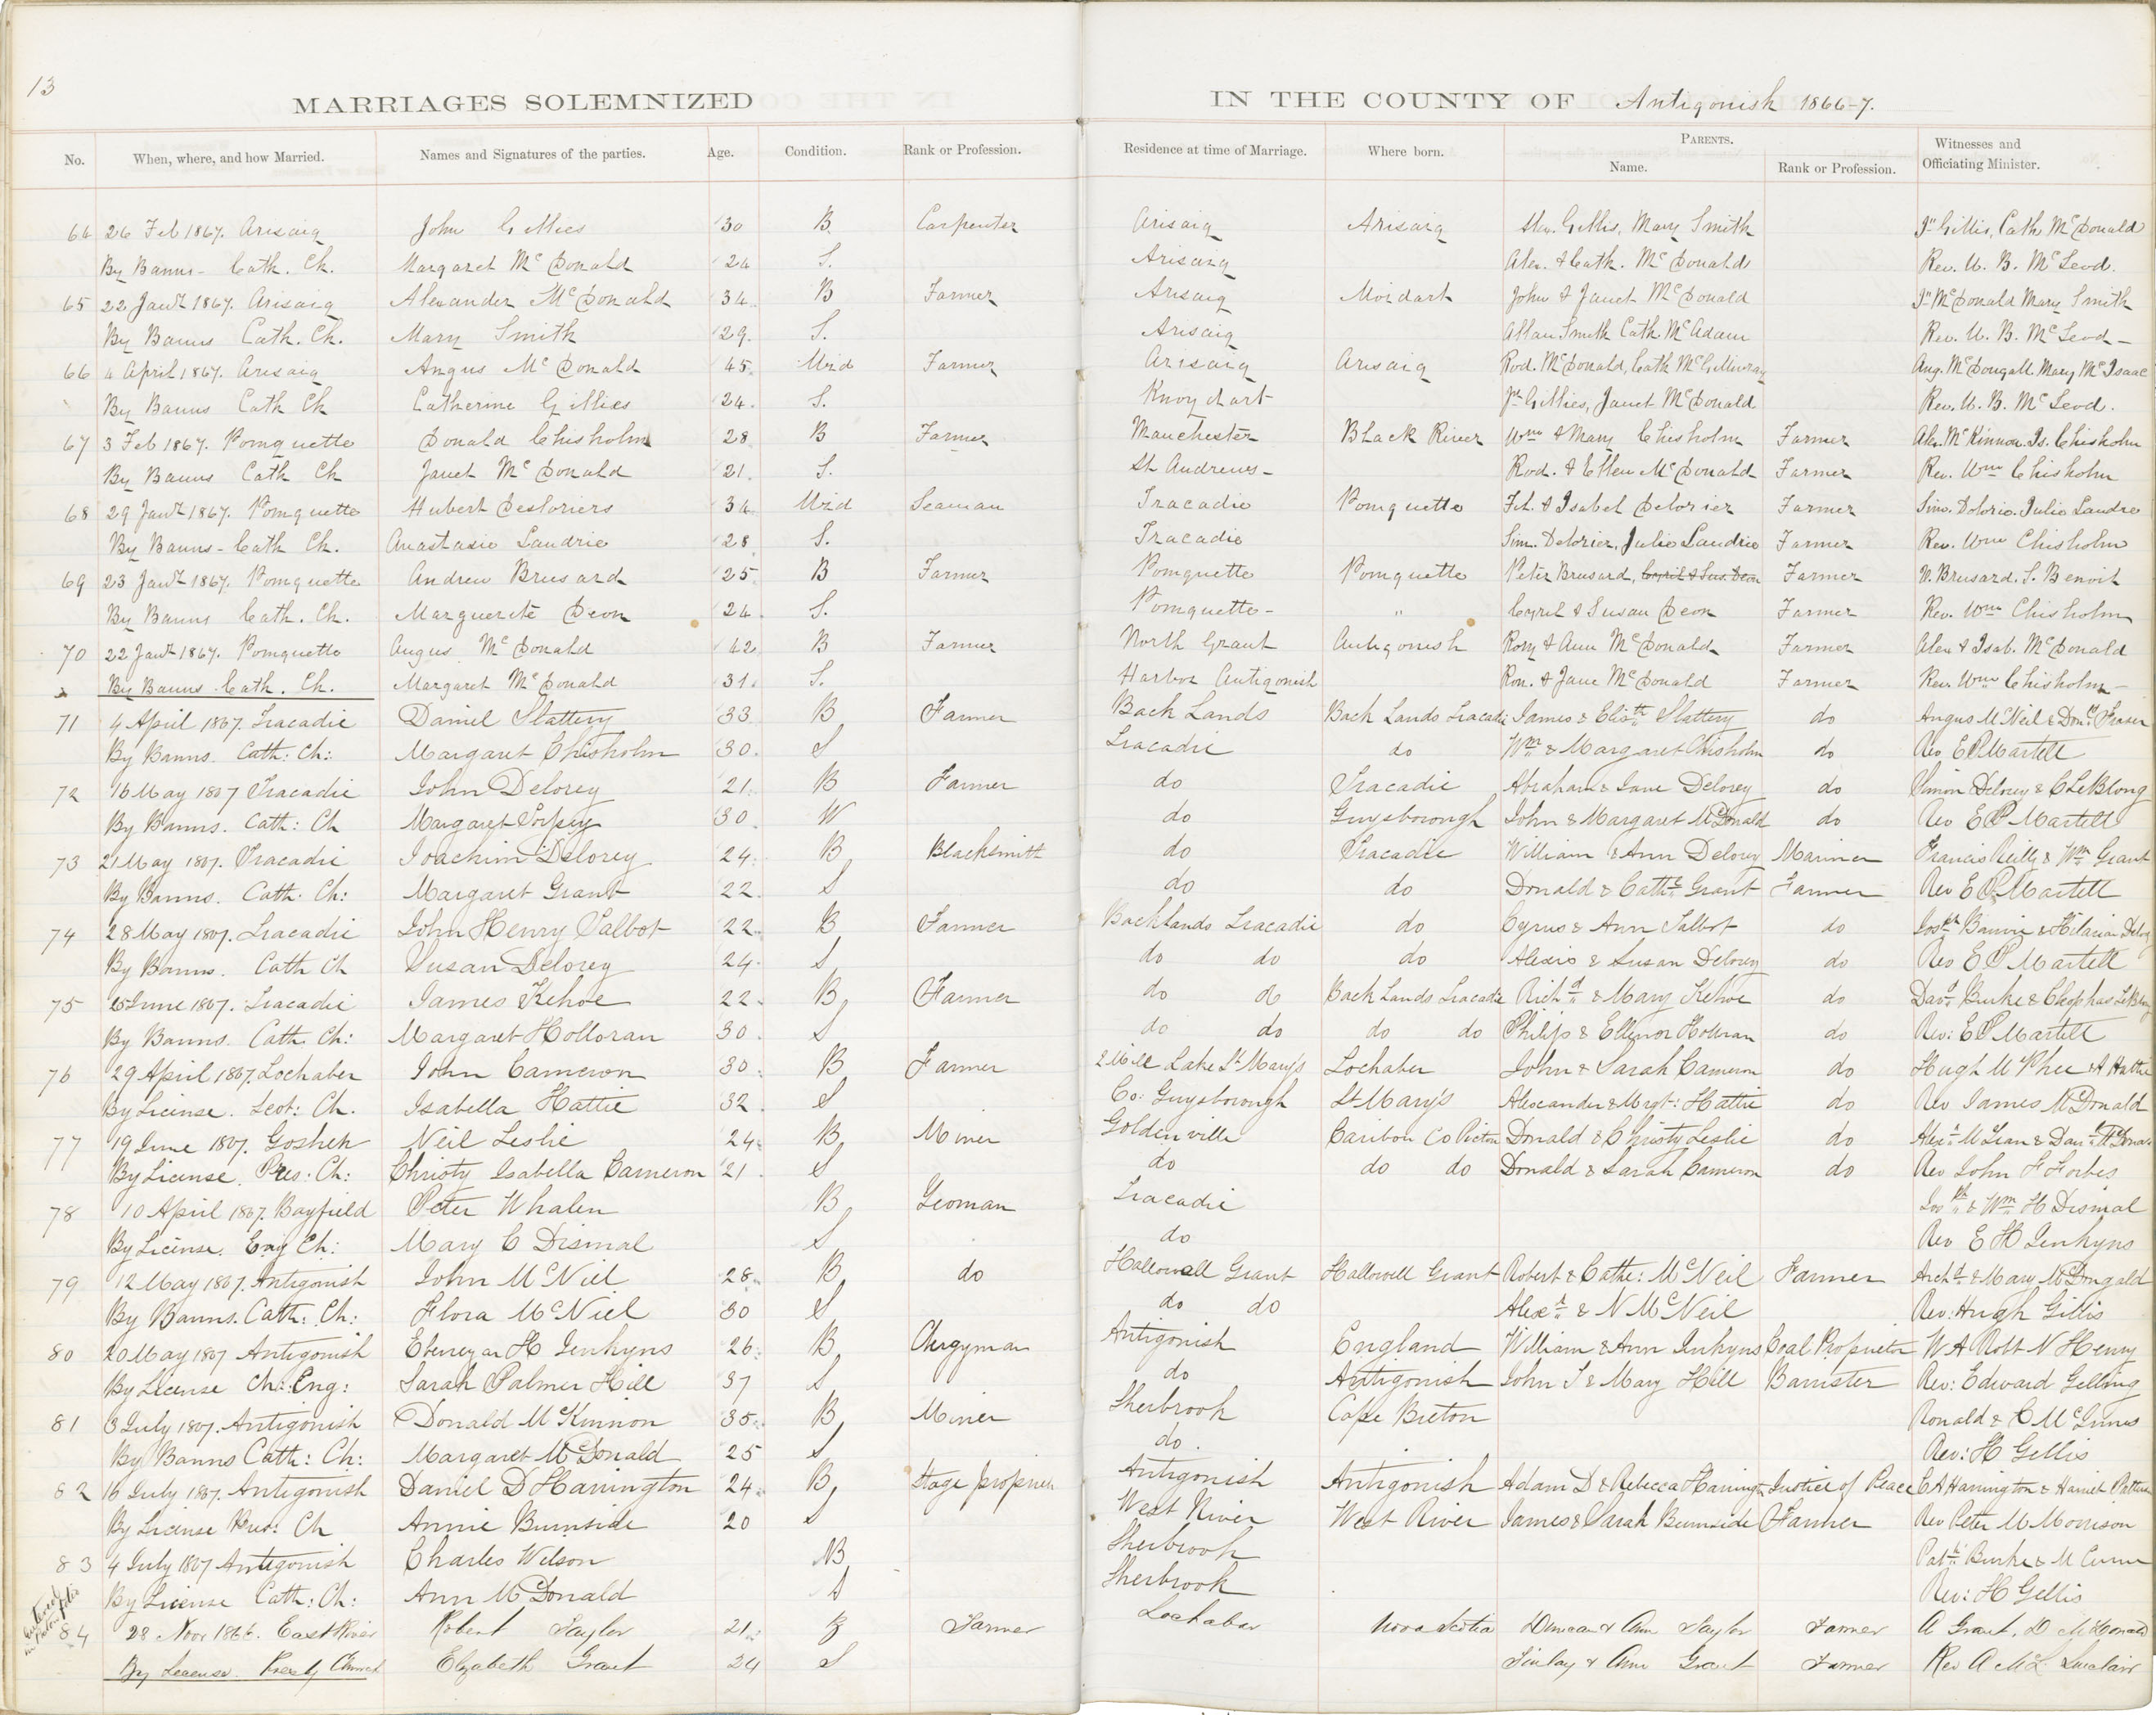 13
MARRIAGES SOLEMNIZED IN THE COUNTY OF Antigonish 1866-7.
No. When, where, and how Married. Names and Signatures of the parties. Age. Condition. Rank or Profession. Residence at time of Marriage. Where born. PARENTS. Name. Rank or Profession. Witnesses and Officiating Minister.
64 26 Feb 1867. Arisaig John Gillies 30 B. Carpenter Arisaig Arisaig Alex. Gillis, Mary Smith Jn Gillis, Cath McDonald
By Banns - Cath. Ch. Margaret McDonald 24 S. Arisaig Alex. & Cath. McDonald Rev. W. B. McLeod.
65 22 Jany 1867. Arisaig Alexander McDonald 34 B Farmer Arisaig Moidart John & Janet McDonald Jn McDonald Mary Smith
By Banns Cath. Ch. Mary Smith 29. S. Arisaig Allan Smith Cath. McAdam Rev. W. B. McLeod -
66 4 April 1867. Arisaig Angus McDonald 45. Wid Farmer Arisaig Arisaig Rod. McDonald, Cath McGillivray Ang. McDougall Mary McIsaac
By Banns Cath Ch Catherine Gillies 24. S. Knoydart Jn Gillies, Janet McDonald Rev. W. B. McLeod.
67 3 Feb 1867. Pomquette Donald Chisholm 28 B Farmer Manchester Black River Wm & Mary Chisholm Farmer Alex. McKinnon. Is. Chisholm
By Banns Cath Ch Janet McDonald 21. S. St Andrews - Rod. & Ellen McDonald Farmer Rev. Wm Chisholm
68 29 Jany 1867. Pomquette Hubert Desloriers 34 Wid Seaman Tracadie Pomquette Fel. & Isabel Delorier Farmer Sim. Delorie. Julie Landre
By Banns - Cath Ch. Anastasie Landrie 28 S. Tracadie Sim. Delorier, Julie Landrie Farmer Rev. Wm Chisholm
69 23 Jany 1867. Pomquette Andrew Brusard 25 B Farmer Pomquette Pomquette Peter Brusard, Cyril & Sus. Deon Farmer W. Brusard. S. Benoit
By Banns Cath. Ch. Marguerite Deon 24 S. Pomquette - " Cyril & Susan Deon Farmer Rev. Wm Chisholm
70 22 Jany 1867. Pomquette Angus McDonald 42 B Farmer North Grant Antigonish Rory & Ann McDonald Farmer Alex & Isab. McDonald
By Banns Cath. Ch. Margaret McDonald 31. S. Harbor Antigonish Ron. & Jane McDonald Farmer Rev. Wm Chisholm -
71 4 April 1867. Tracadie Daniel Slattery 33 B Farmer Back Lands Back Lands Tracadie James & Elisth Slattery do Angus McNeil & Fraser
By Banns. Cath: Ch: Margaret Chisholm 30. S Tracadie do Wm & Margaret Chisholm do Rev E P Martell
72 16 May 1867 Tracadie John Delorey 21. B Farmer do Tracadie Abraham & Jane Delorey do Simon Delorey & C LeBlong
By Banns. Cath: Ch Margaret 30. W do Guysborough John & Margaret McDonald do Rev E P Martell
73 21 May 1867. Tracadie Joachim Delorey 24. B Blacksmith do Tracadie William & Ann Delorey Mariner Francis Reilly & Wm Grant
By Banns. Cath. Ch: Margaret Grant 22. S do do Donald & Cathe Grant Farmer Rev E P Martell
74 28 May 1867. Tracadie John Henry Talbot 22 B Farmer Backlands Tracadie do Cyrus & Ann Talbot do & Hilarian Delorey
By Banns. Cath Ch Susan Delorey 24. S do do do Alexis & Susan Delorey do Rev E P Martell
75 25 June 1867. Tracadie James Kehoe 22. B Farmer do do Back Lands Tracadie Richd & Mary Kehoe do Davd Burke &
By Banns. Cath. Ch: Margaret Holloran 30. S do do do do Philip & Ellenor Holloran do Rev: E P Martell
76 29 April 1867. Lochaber John Cameron 30. B Farmer 2 Mile Lake St Mary's Lochaber John & Sarah Cameron do Hugh McPhee & A Hattie
By License. Scot: Ch. Isabella Hattie 32. S Co: Guysborough St Mary's Alexander & Mrgt: Hattie do Rev James McDonald
77 19 June 1867. Goshen Neil Leslie 24. B Miner Goldenville Caribou Co Pictou Donald & Christy Leslie do Alexr McLean &
By License. Pres: Ch: Christy Isabella Cameron 21. S do do do Donald & Sarah Cameron do Rev John F Forbes
78 10 April 1867. Bayfield Peter Whalen B Yeoman Tracadie Josph & Wm H Dismal
By License. Eng Ch: Mary C Dismal S do Rev E H Jenkyns
79 12 May 1867. Antigonish John McNiel 28. B do Hallowell Grant Hallowell Grant Robert & Cathe: McNeil Farmer Archd & Mary McDongald
By Banns. Cath: Ch: Flora McNiel 30 S do do Alexr & N McNeil Rev: Hugh Gillis
80 20 May 1867 Antigonish Ebenezar H Jenkyns 26. B Clergyman Antigonish England William & Ann Jenkyns Coal Proprietor W A Robt N Henry
By License Ch: Eng: Sarah Palmer Hill 37 S do Antigonish John J & Mary Hill Barrister Rev: Edward Gelling
81 3 July 1867. Antigonish Donald McKinnon 35. B Miner Sherbrook Cape Breton Ronald & C McInnes
By Banns Cath: Ch: Margaret McDonald 25 S do. Rev: H Gillis
82 16 July 1867. Antigonish Daniel D Harrington 24. B Stage proprieter Antigonish Antigonish Adam D & Rebecca Harrington Justice of Peace C A Harrington & Harriet
By License Pres: Ch Annie Burnside 20 S West River West River James & Sarah Burnside Farmer Rev Peter M Morrison
83 4 July 1867 Antigonish Charles Wilson B Sherbrook Patk Burke & M Curran
By License Cath: Ch: Ann McDonald S Sherbrook Rev: H Gillis
84 28 Nov 1866. East River Robert Taylor 21. B Farmer Lochaber Nova Scotia Duncan & Ann Taylor Farmer A Grant, D McDonald
By License. Presby Church Elizabeth Grant 24 S Finlay & Ann Grant Farmer Rev A McL Sinclair